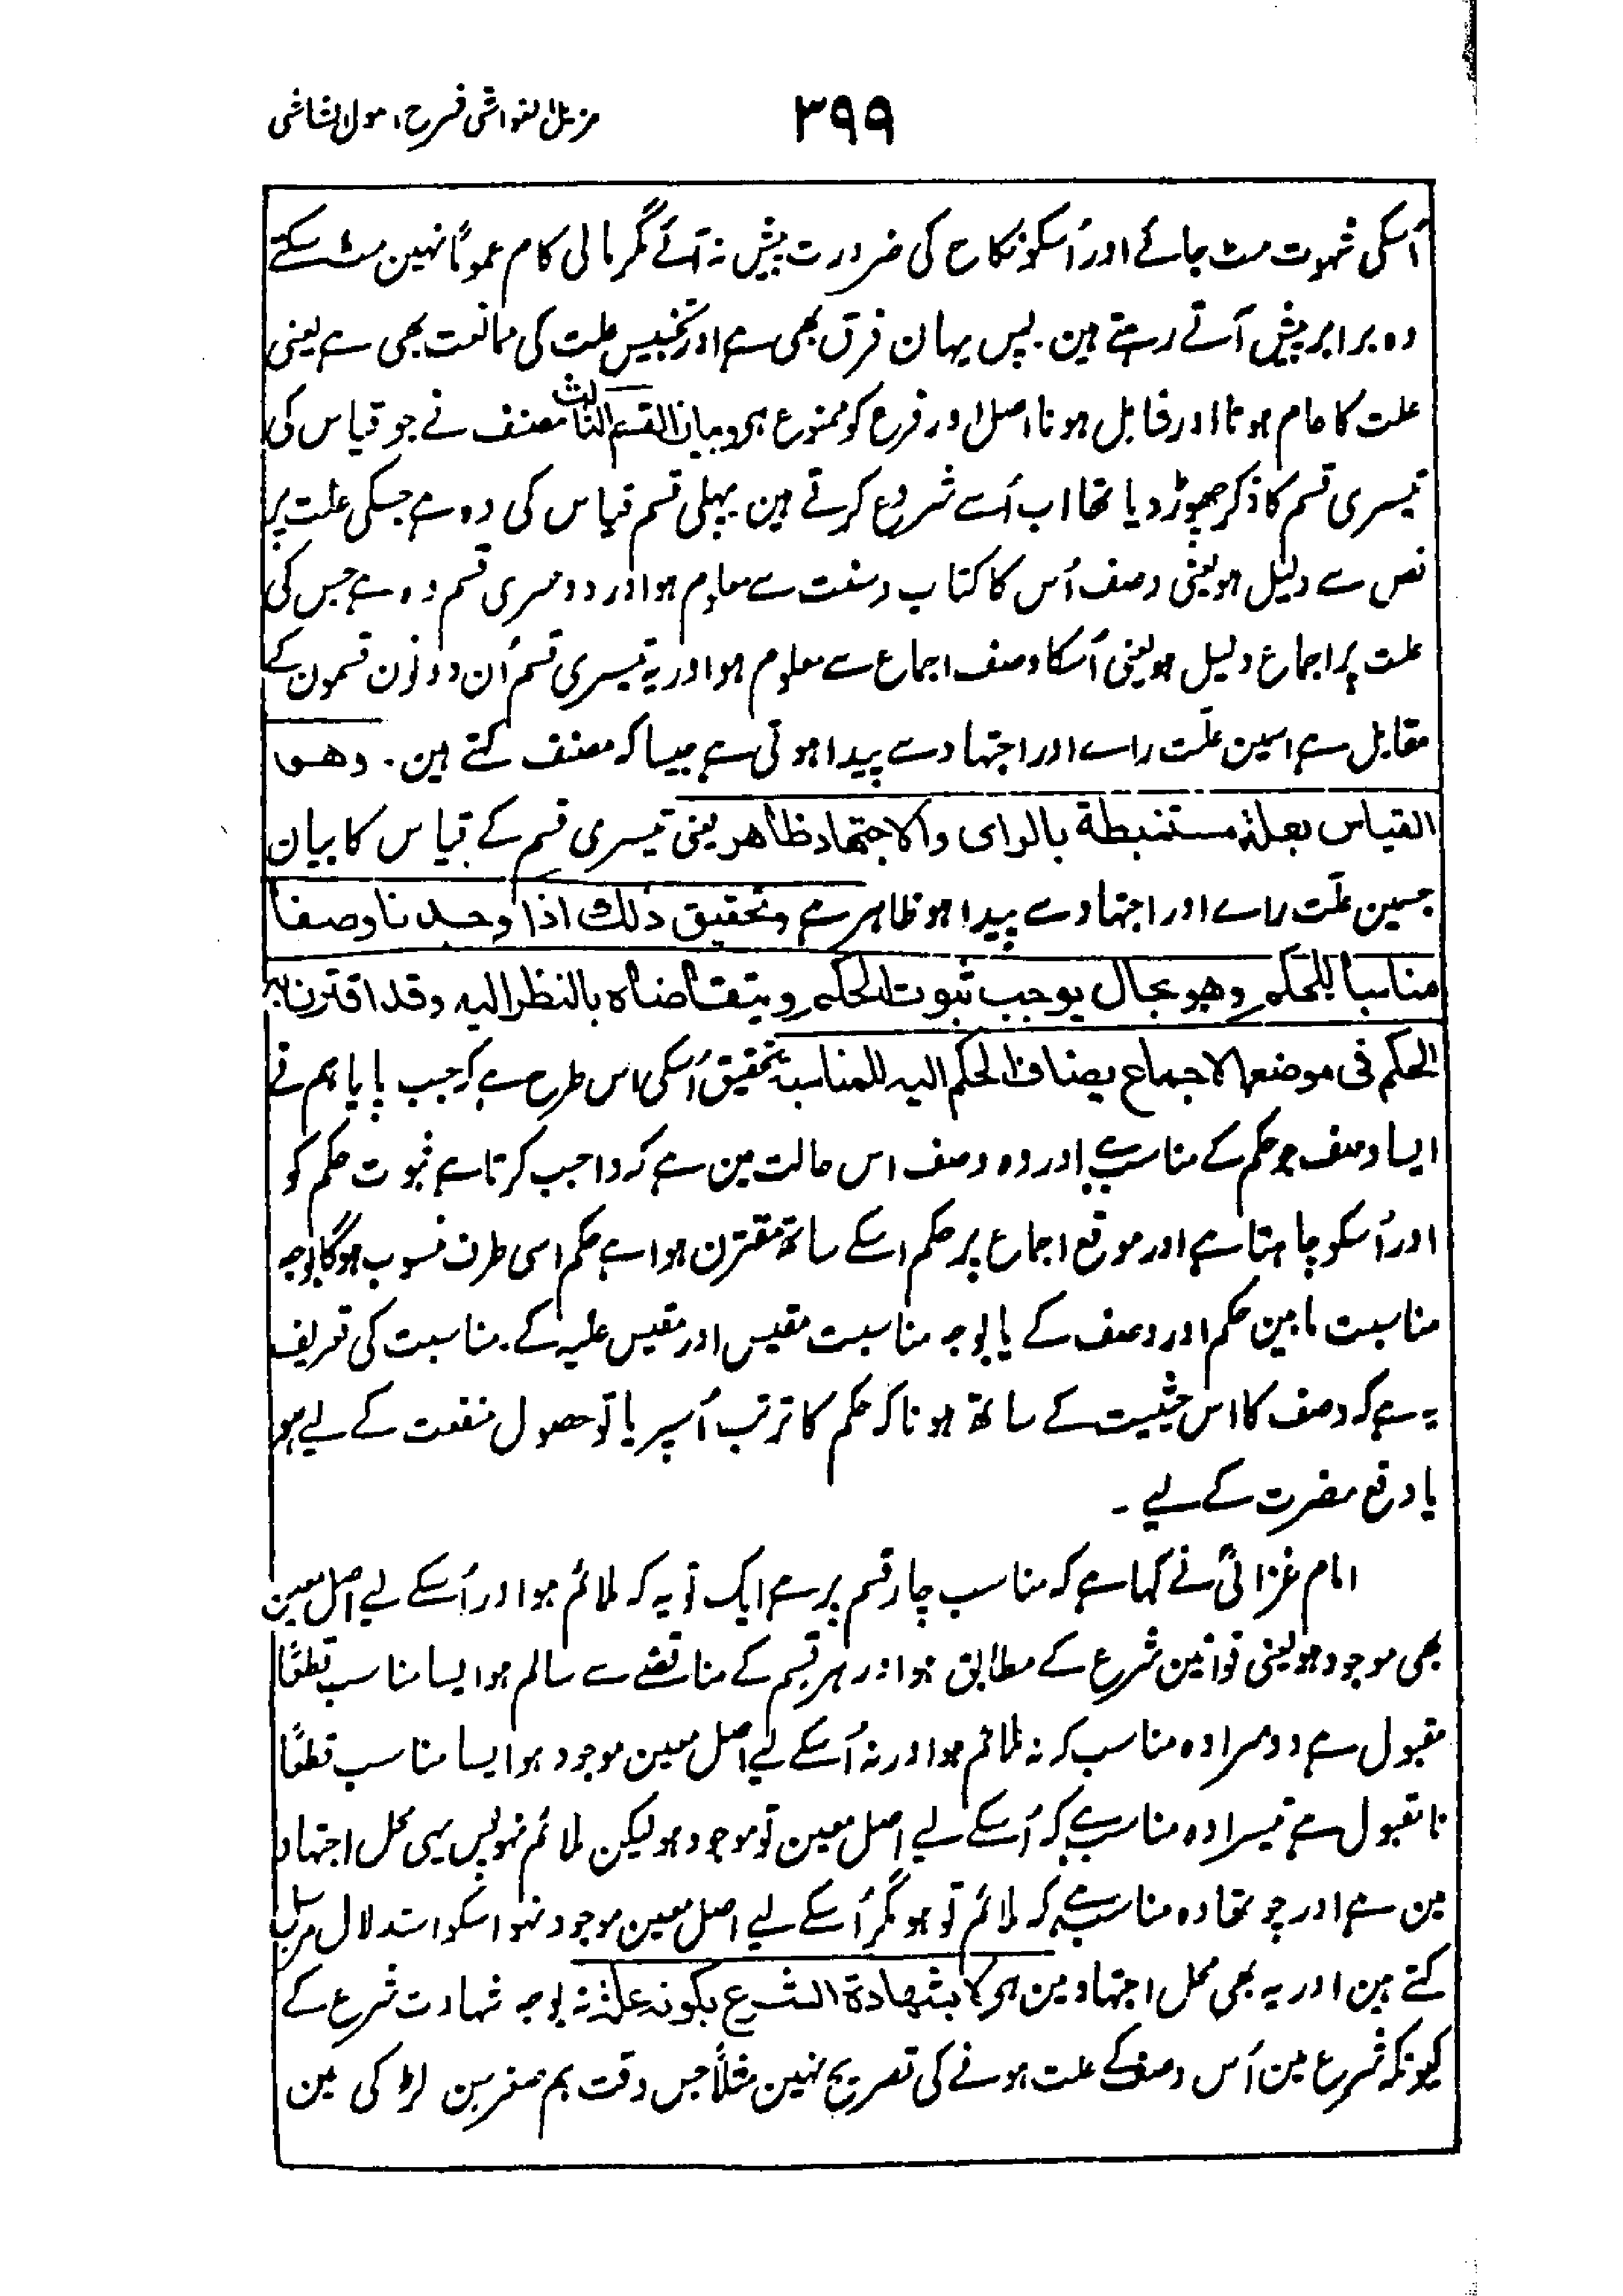 مزیل الغواشی شرح اصول الشاشی
۳۹۹
اُسکی شہوت مٹ جائے اور اُسکو نکاح کی ضرورت پیش نہ آئے مگر مالی کام عموماً نہین مٹ سکتے
وہ برابر پیش آتے رہتے ہین۔ پس یہان فرق بھی ہے اور تجنیس علت کی ممانعت بھی ہے یعنی
علت کا عام ہونا اور قابل ہونا اصل اور فرع کو ممنوع ہی وبیان القسم الثالث مصنف نے جو قیاس کی
تیسری قسم کا ذکر چھوڑ دیا تھا اب اُسے شروع کرتے ہین پہلی قسم قیاس کی وہ ہے جسکی علت پر
نص سے دلیل ہو یعنی وصف اُس کا کتاب وسنت سے معلوم ہو اور دوسری قسم وہ ہے جس کی
علت پر اجماع دلیل ہو یعنی اُسکا وصف اجماع سے معلوم ہو اور یہ تیسری قسم اُن دونون قسمون کے
مقابل ہے اسمین علّت راے اور اجتہاد سے پیدا ہوتی ہے جیسا کہ مصنف کہتے ہین۔ وهو
القیاس بعلة مستنبطة بالرای والاجتهاد ظاهر یعنی تیسری قسم کے قیاس کا بیان
جسمین علّت راے اور اجتہاد سے پیدا ہو ظاہر ہے وتحقیق ذلك اذا وجدنا وصفا
مناسبا للحکم وهو بحال یوجب ثبوت الحکم ویتقاضاه بالنظر الیه وقد اقترن به
الحکم فی موضع الاجماع یضاف الحکم الیه للمناسبة تحقیق اُسکی اس طرح ہے کہ جب پایا ہم نے
ایسا وصف جو حکم کے مناسب ہے اور وہ وصف اس حالت مین ہے کہ واجب کرتا ہے ثبوت حکم کو
اور اُسکو چاہتا ہے اور موقع اجماع پر حکم اسکے ساتھ مقترن ہوا ہے حکم اسی طرف منسوب ہوگا بوجہ
مناسبت مابین حکم اور وصف کے یا بوجہ مناسبت مقیس اور مقیس علیہ کے۔ مناسبت کی تعریف
یہ ہے کہ وصف کا اس حیثیت کے ساتھ ہونا کہ حکم کا ترتب اُسپر یا تو حصول منفعت کے لیے ہو
یا دفع مضرت کے لیے۔
امام غزالیؒ نے کہا ہے کہ مناسب چار قسم پر ہے ایک تو یہ کہ ملائم ہو اور اُسکے لیے اصل معین
بھی موجود ہو یعنی قوانین شرع کے مطابق ہو اور ہر قسم کے مناقضے سے سالم ہو ایسا مناسب قطعًا
مقبول ہے دوسرا وہ مناسب کہ نہ ملائم ہو اور نہ اُسکے لیے اصل معین موجود ہو ایسا مناسب قطعًا
نامقبول ہے تیسرا وہ مناسب ہے کہ اُسکے لیے اصل معین تو موجود ہو لیکن ملائم نہو پس یہی محل اجتہاد
مین ہے اور چوتھا وہ مناسب ہے کہ ملائم تو ہو مگر اُسکے لیے اصل معین موجود نہو اسکو استدلال مرسل
کہتے ہین اور یہ بھی محل اجتہاد مین ہی لا بشهادة الشرع بکونه علة نہ بوجہ شہادت شرع کے
کیونکہ شرع مین اُس وصف کے علت ہونے کی تصریح نہین مثلًا جس وقت ہم صغر سِن لڑکی مین